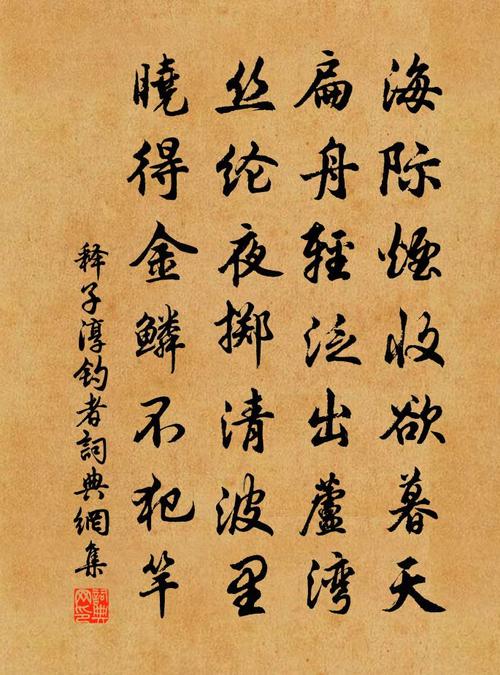 海际烟收欲暮天
扁舟轻泛出蘆湾
丝纶夜掷清波里
曉得金鳞不犯竿
释子淳钓者詞典網集
詞典网印